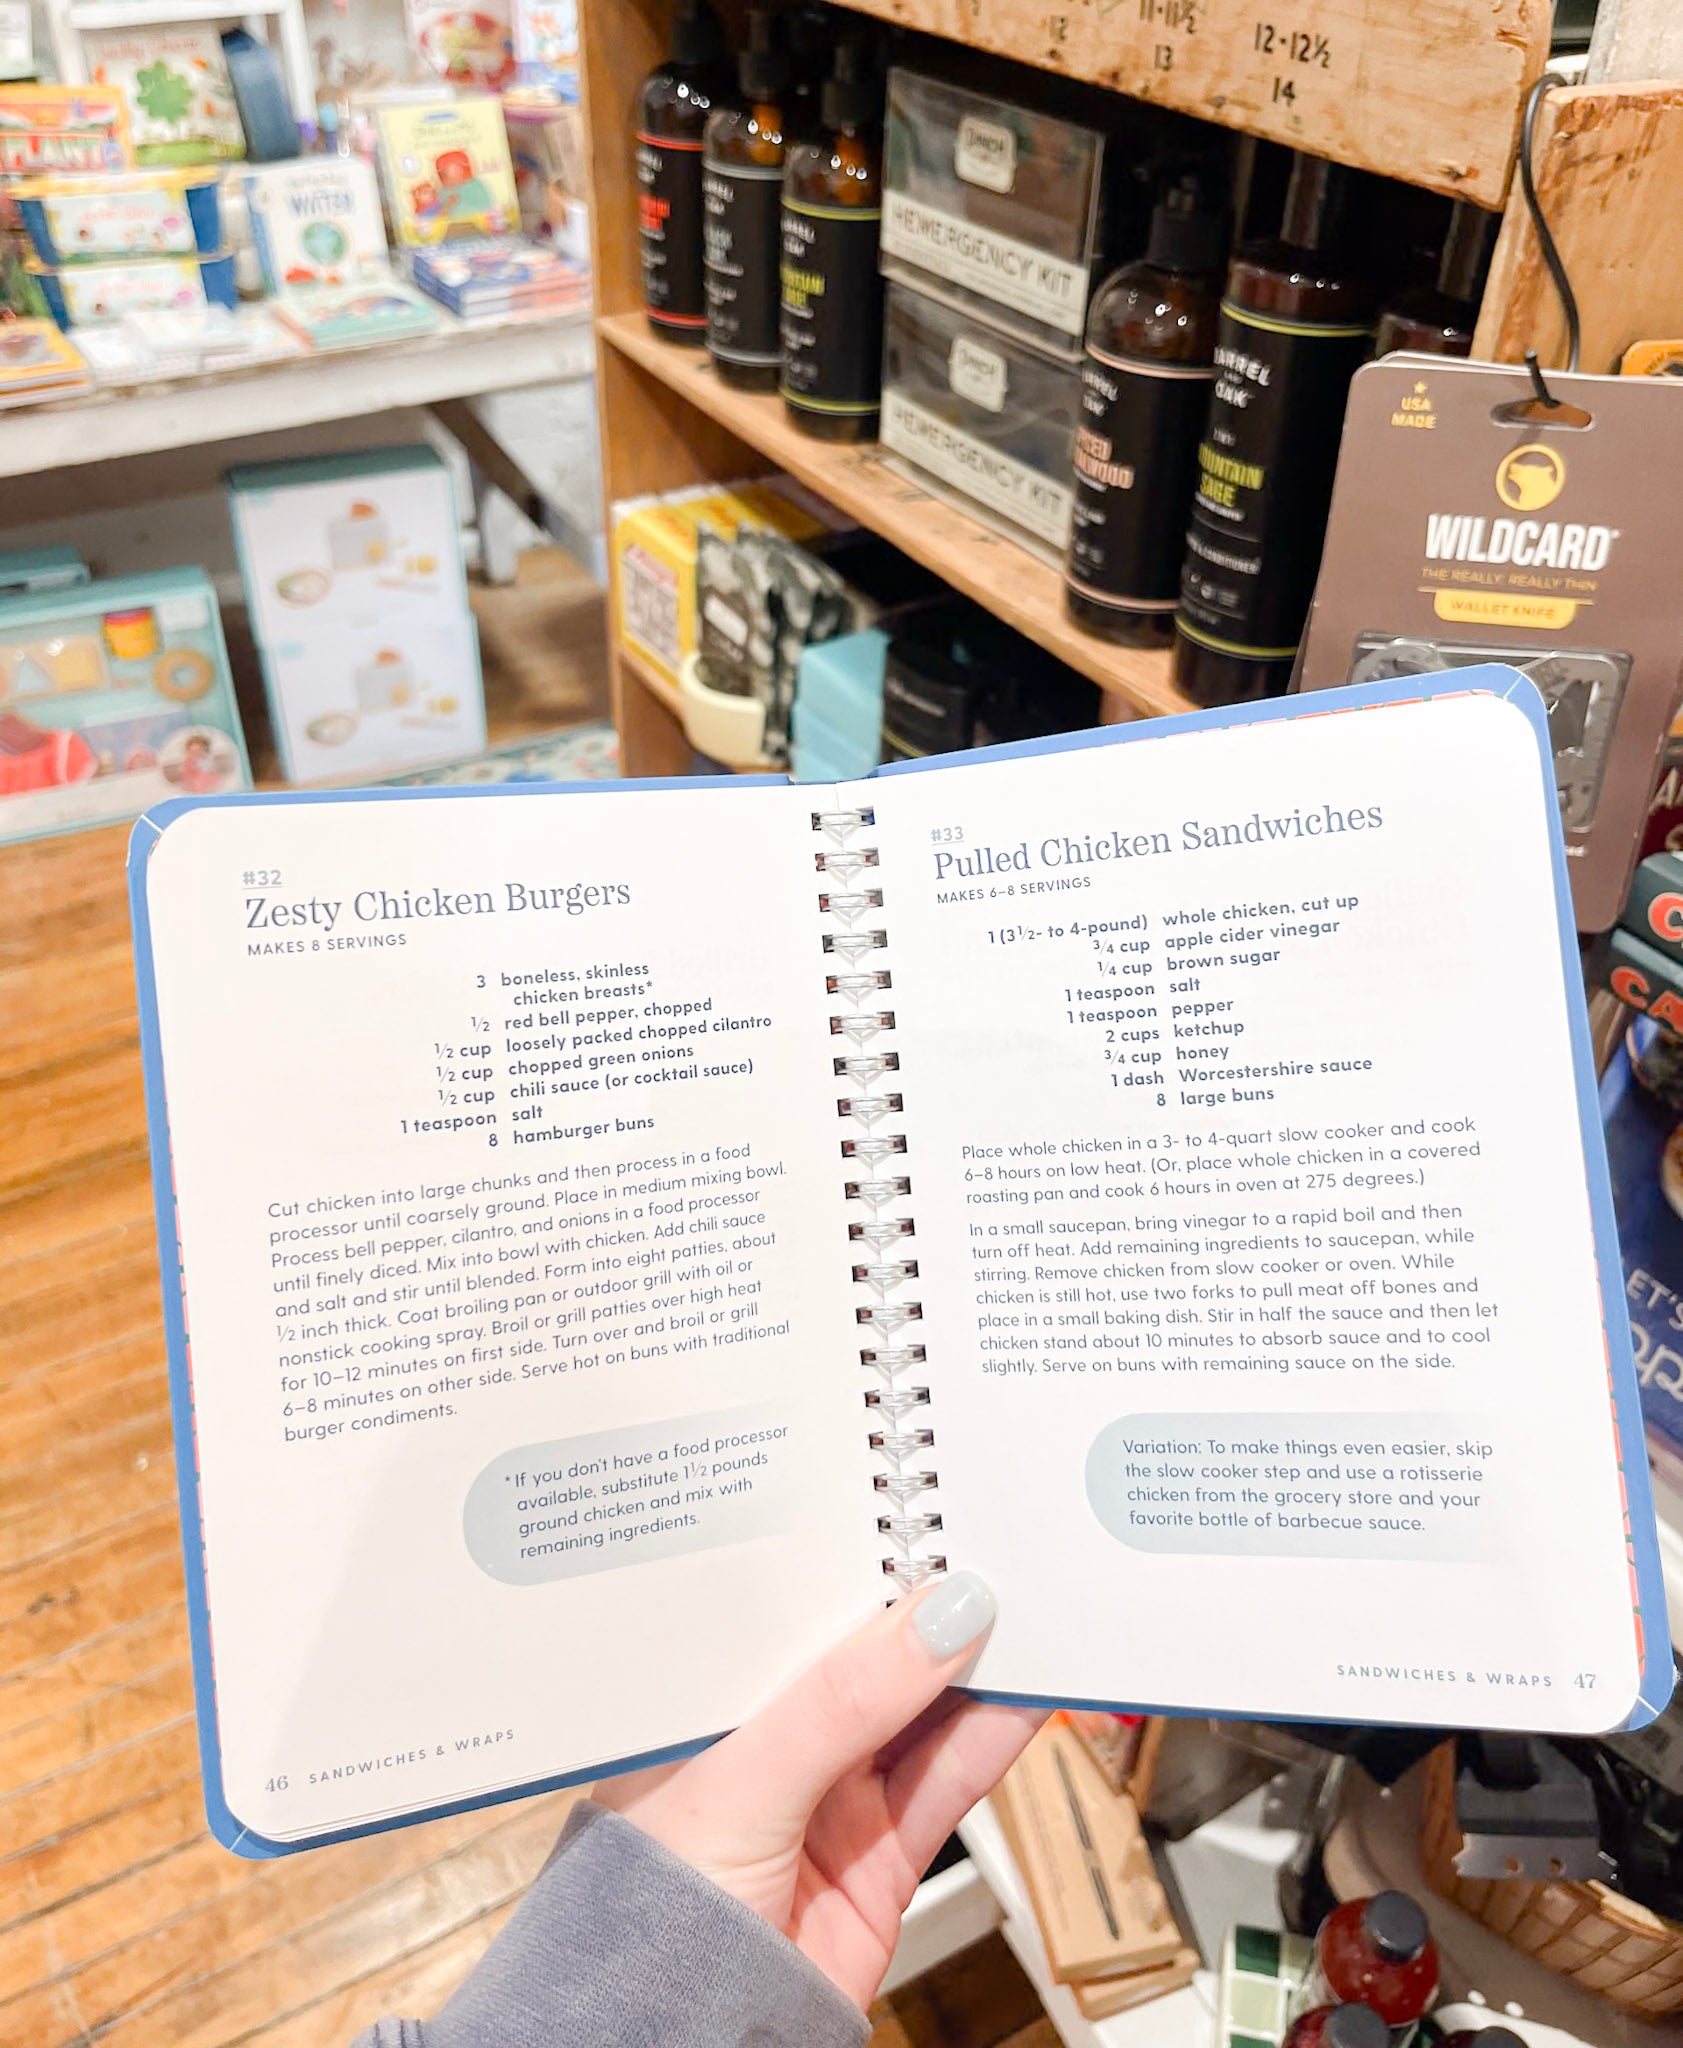 11-11½
12
13
12-12½
14
PLANT
WATER
HEMERGENCY KIT
HEMERGENCY KIT
BARREL
AND
OAK
MOUNTAIN
SAGE
USA
MADE
WILDCARD
THE REALLY, REALLY THIN
WALLET KNIFE
#32
Zesty Chicken Burgers
MAKES 8 SERVINGS
3 boneless, skinless
chicken breasts*
½ red bell pepper, chopped
½ cup loosely packed chopped cilantro
½ cup chopped green onions
½ cup chili sauce (or cocktail sauce)
1 teaspoon salt
8 hamburger buns
Cut chicken into large chunks and then process in a food
processor until coarsely ground. Place in medium mixing bowl.
Process bell pepper, cilantro, and onions in a food processor
until finely diced. Mix into bowl with chicken. Add chili sauce
and salt and stir until blended. Form into eight patties, about
½ inch thick. Coat broiling pan or outdoor grill with oil or
nonstick cooking spray. Broil or grill patties over high heat
for 10–12 minutes on first side. Turn over and broil or grill
6–8 minutes on other side. Serve hot on buns with traditional
burger condiments.
* If you don't have a food processor
available, substitute 1½ pounds
ground chicken and mix with
remaining ingredients.
46 SANDWICHES & WRAPS
#33
Pulled Chicken Sandwiches
MAKES 6–8 SERVINGS
1 (3½- to 4-pound) whole chicken, cut up
¾ cup apple cider vinegar
¼ cup brown sugar
1 teaspoon salt
1 teaspoon pepper
2 cups ketchup
¾ cup honey
1 dash Worcestershire sauce
8 large buns
Place whole chicken in a 3- to 4-quart slow cooker and cook
6–8 hours on low heat. (Or, place whole chicken in a covered
roasting pan and cook 6 hours in oven at 275 degrees.)
In a small saucepan, bring vinegar to a rapid boil and then
turn off heat. Add remaining ingredients to saucepan, while
stirring. Remove chicken from slow cooker or oven. While
chicken is still hot, use two forks to pull meat off bones and
place in a small baking dish. Stir in half the sauce and then let
chicken stand about 10 minutes to absorb sauce and to cool
slightly. Serve on buns with remaining sauce on the side.
Variation: To make things even easier, skip
the slow cooker step and use a rotisserie
chicken from the grocery store and your
favorite bottle of barbecue sauce.
SANDWICHES & WRAPS 47